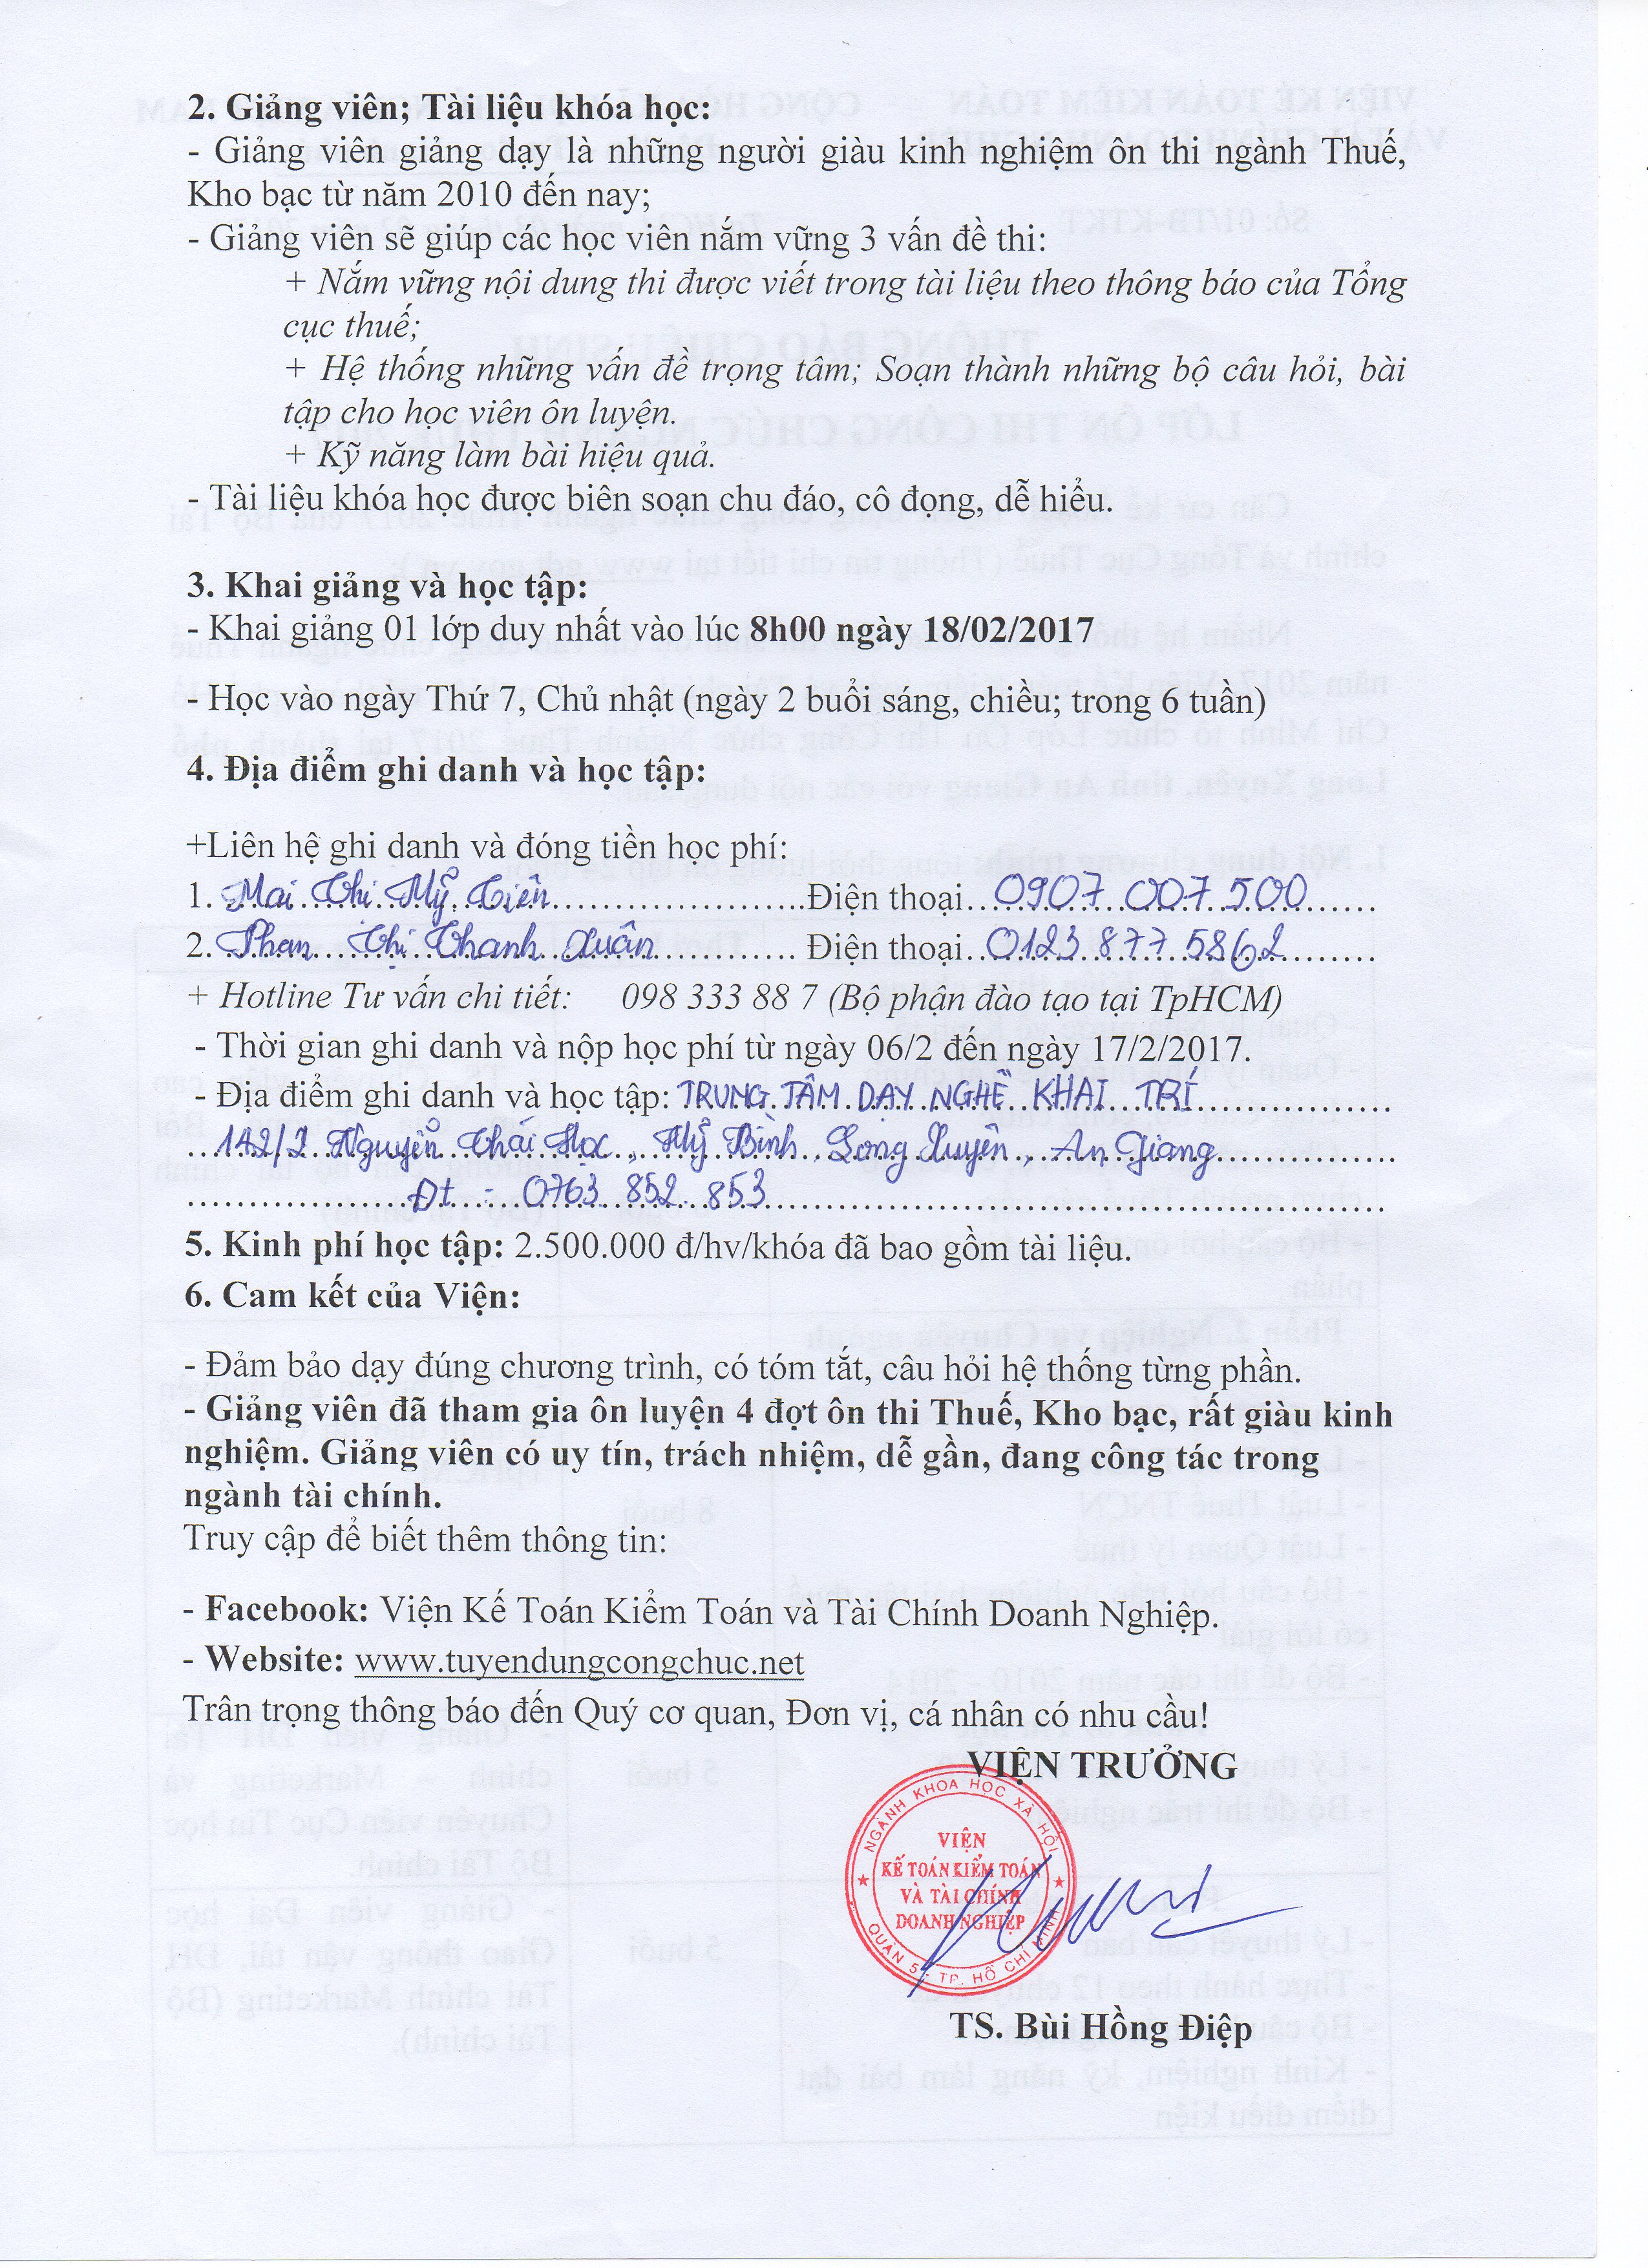 2. Giảng viên; Tài liệu khóa học:
- Giảng viên giảng dạy là những người giàu kinh nghiệm ôn thi ngành Thuế,
Kho bạc từ năm 2010 đến nay;
- Giảng viên sẽ giúp các học viên nắm vững 3 vấn đề thi:
+ Nắm vững nội dung thi được viết trong tài liệu theo thông báo của Tổng
cục thuế;
+ Hệ thống những vấn đề trọng tâm; Soạn thành những bộ câu hỏi, bài
tập cho học viên ôn luyện.
+ Kỹ năng làm bài hiệu quả.
- Tài liệu khóa học được biên soạn chu đáo, cô đọng, dễ hiểu.
3. Khai giảng và học tập:
- Khai giảng 01 lớp duy nhất vào lúc 8h00 ngày 18/02/2017
- Học vào ngày Thứ 7, Chủ nhật (ngày 2 buổi sáng, chiều; trong 6 tuần)
4. Địa điểm ghi danh và học tập:
+Liên hệ ghi danh và đóng tiền học phí:
1. Mai Thị Mỹ Tiên Điện thoại 0907 007 500
2. Phan Thị Thanh Xuân Điện thoại 0123 877 5862
+ Hotline Tư vấn chi tiết: 098 333 88 7 (Bộ phận đào tạo tại TpHCM)
- Thời gian ghi danh và nộp học phí từ ngày 06/2 đến ngày 17/2/2017.
- Địa điểm ghi danh và học tập: TRUNG TÂM DẠY NGHỀ KHAI TRÍ
142/2 Nguyễn Thái Học, Mỹ Bình, Long Xuyên, An Giang
Đt : 0763 852 853
5. Kinh phí học tập: 2.500.000 đ/hv/khóa đã bao gồm tài liệu.
6. Cam kết của Viện:
- Đảm bảo dạy đúng chương trình, có tóm tắt, câu hỏi hệ thống từng phần.
- Giảng viên đã tham gia ôn luyện 4 đợt ôn thi Thuế, Kho bạc, rất giàu kinh
nghiệm. Giảng viên có uy tín, trách nhiệm, dễ gần, đang công tác trong
ngành tài chính.
Truy cập để biết thêm thông tin:
- Facebook: Viện Kế Toán Kiểm Toán và Tài Chính Doanh Nghiệp.
- Website: www.tuyendungcongchuc.net
Trân trọng thông báo đến Quý cơ quan, Đơn vị, cá nhân có nhu cầu!
VIỆN TRƯỞNG
NGÀNH KHOA HỌC XÃ HỘI
VIỆN
KẾ TOÁN KIỂM TOÁN
VÀ TÀI CHÍNH
DOANH NGHIỆP
QUẬN 5 - TP. HỒ CHÍ MINH
TS. Bùi Hồng Điệp